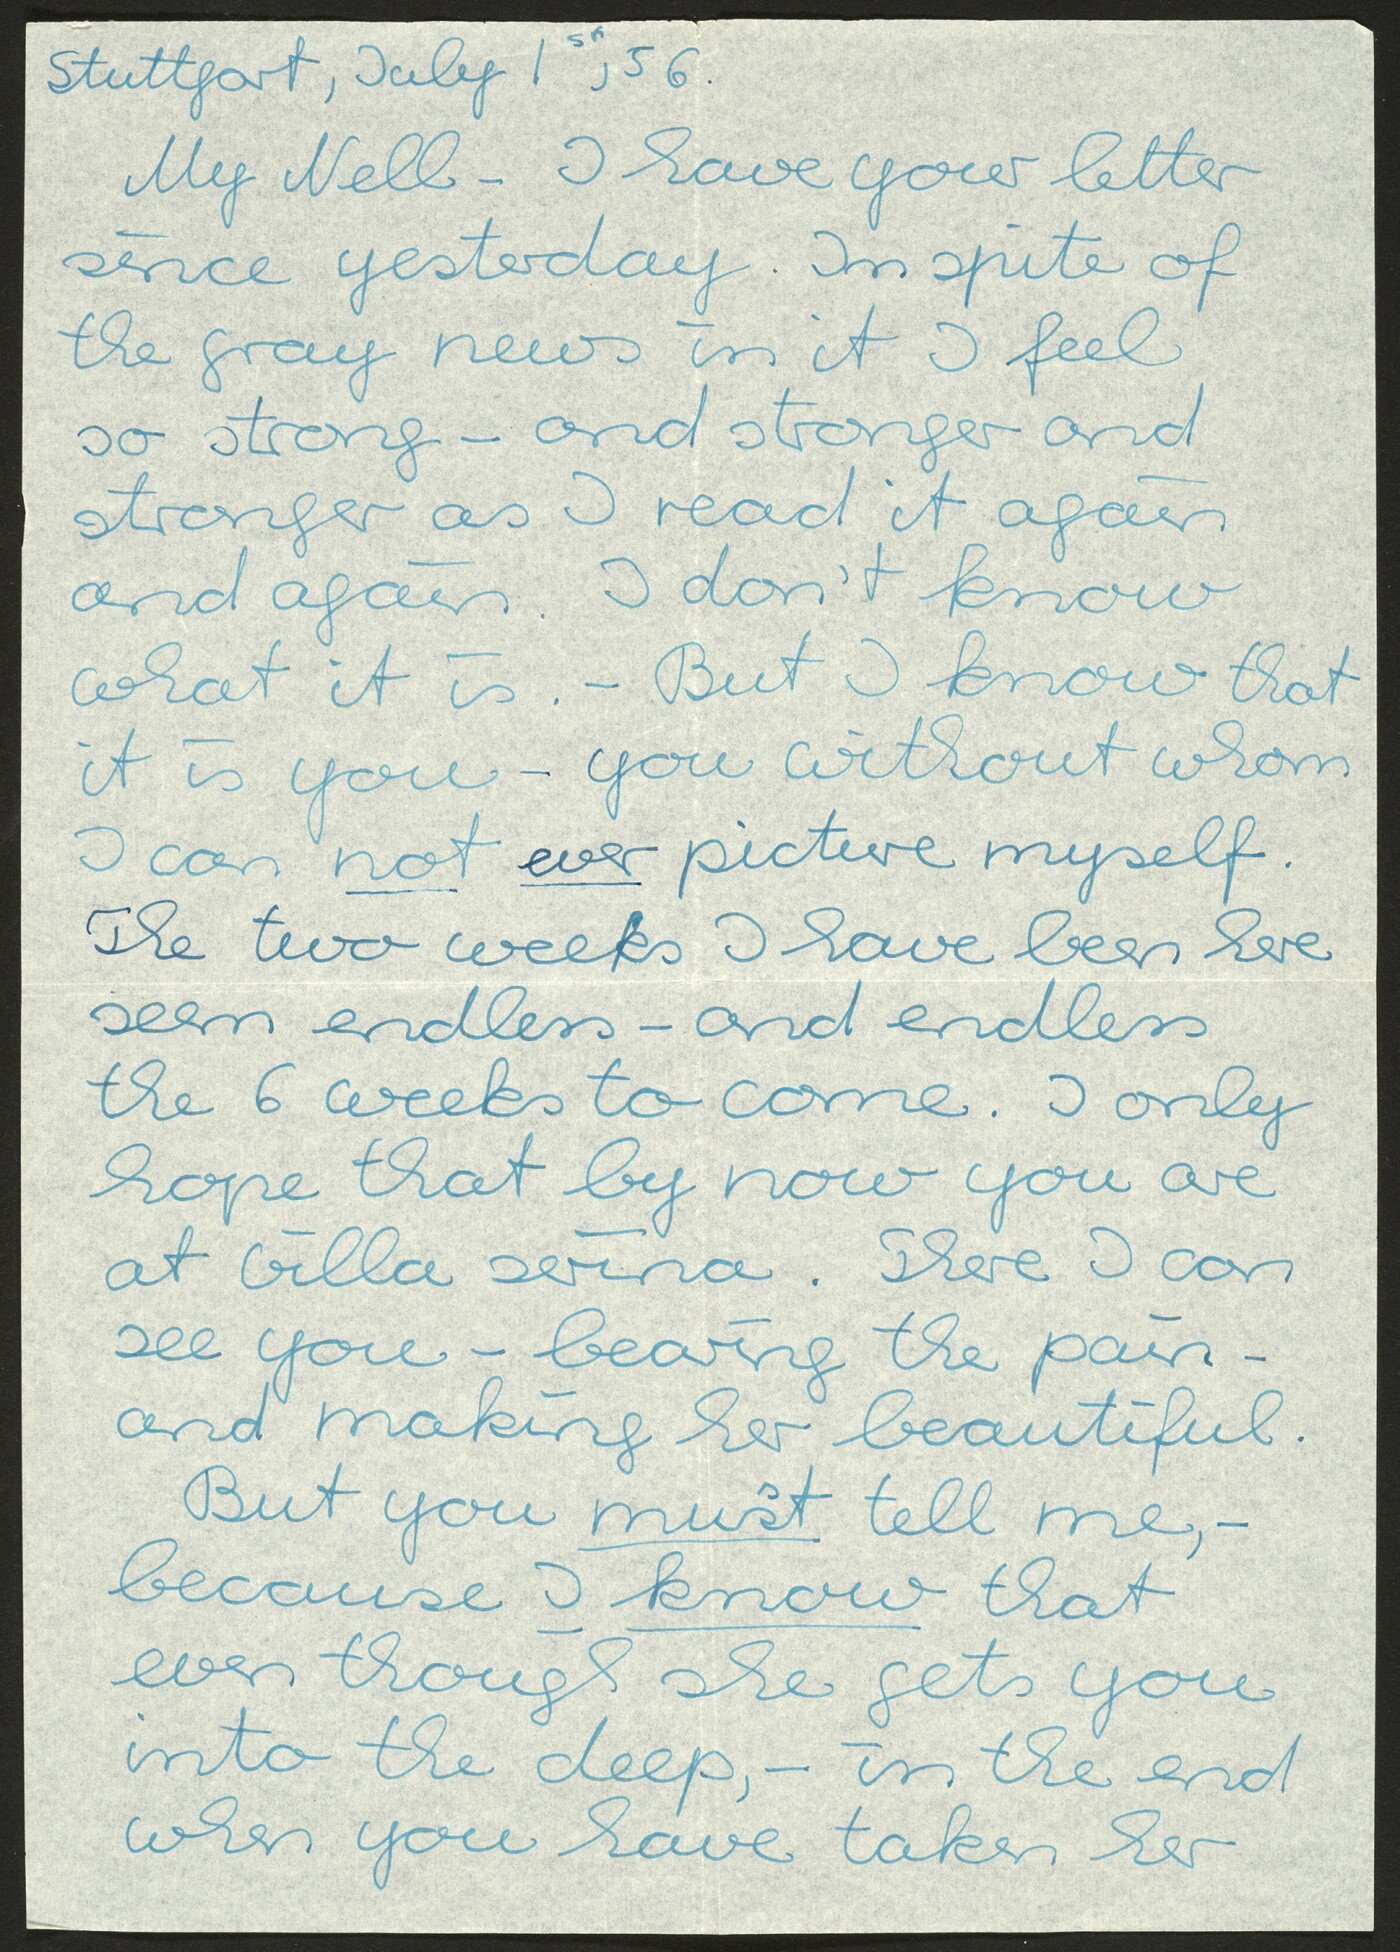 Stuttgart, July 1st, 56.
My Nell - I have your letter
since yesterday. In spite of
the gray news in it I feel
so strong - and stronger and
stronger as I read it again
and again. I don't know
what it is. - But I know that
it is you - you without whom
I can not ever picture myself.
The two weeks I have been here
seem endless - and endless
the 6 weeks to come. I only
hope that by now you are
at Villa serina. There I can
see you - bearing the pain -
and making her beautiful.
But you must tell me, -
because I know that
even though she gets you
into the deep, - in the end
when you have taken her